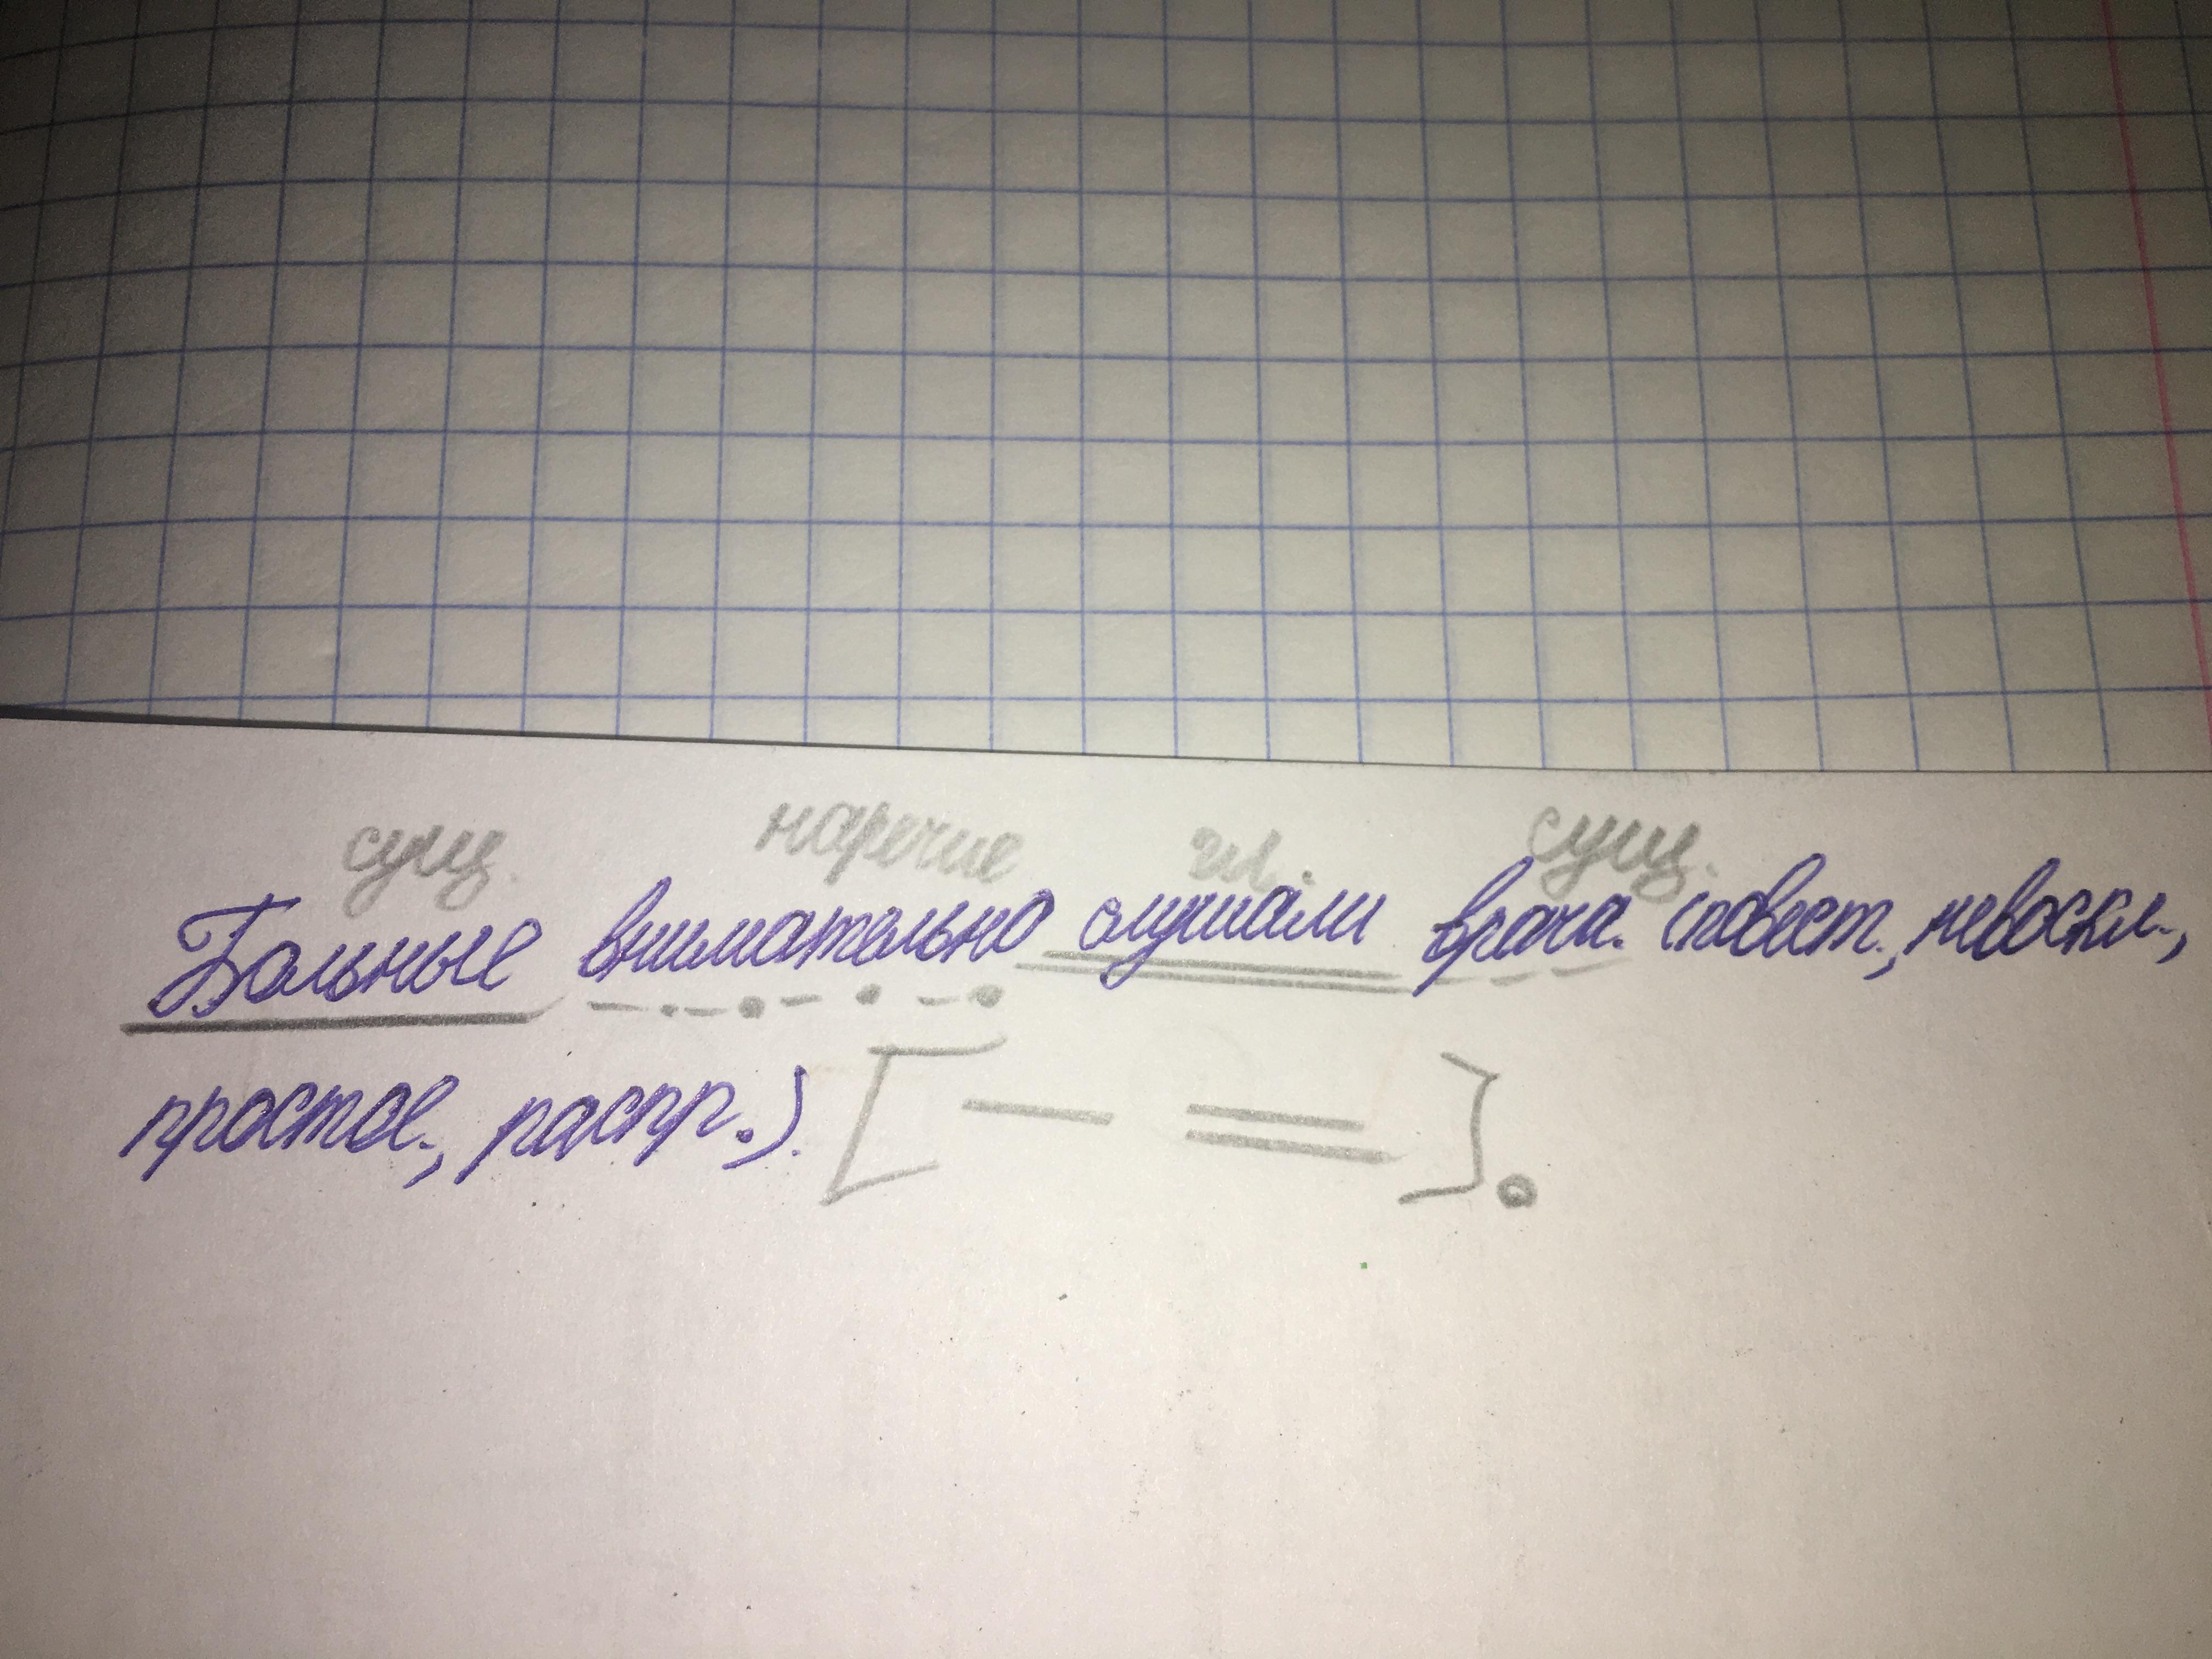 сущ. наречие гл. сущ.
Больные внимательно слушали врача. (повест., невоскл.,
простое., распр.).